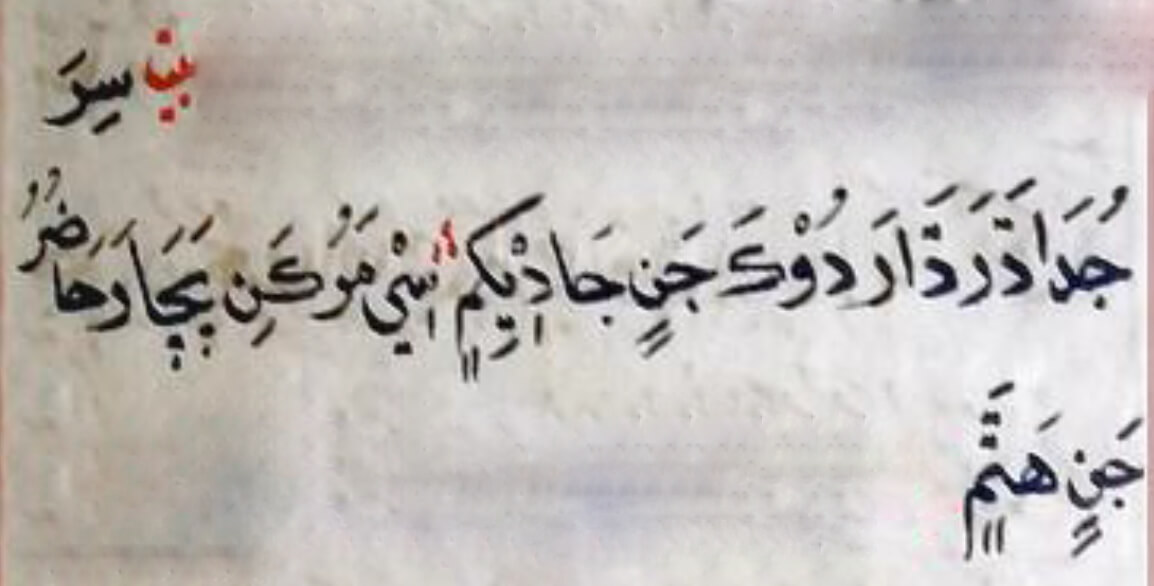 سِرَ
جُدَادَّرَدَّارَ دُوْكَ جَنٍ جَادِيكٍمٍ اِسْنِي مَرُكَنِ بِچَارَ حَاضُرُ
جَنٍ هَتَّمٍ